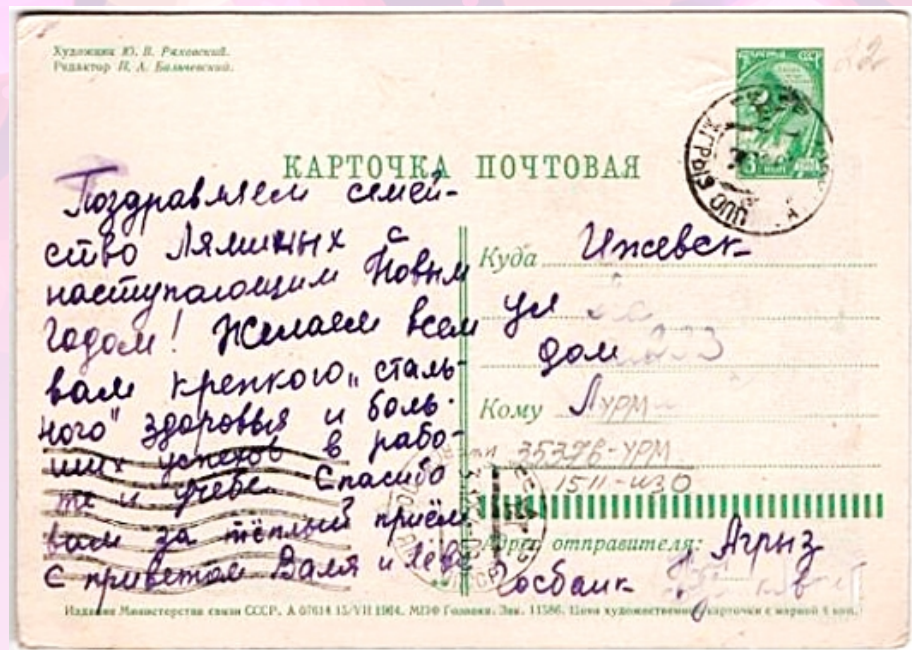 Художник Ю. В. Ряховский.
Редактор
КАРТОЧКА ПОЧТОВАЯ
АГРЫЗ
Поздравляем семей-
ство Ляминых с
наступающим Новым
Годом! Желаем всем
вам крепкого „сталь-
ного" здоровья и боль-
ших успехов в рабо-
те и учебе. Спасибо
вам за тёплый приём.
С приветом Валя и Лёва
Куда Ижевск
ул
дом
Кому
35376-УРМ
1511-ИЗО
Адрес отправителя: г. Агрыз
Госбанк
Издание Министерства связи СССР. А 07614 15/VII 1964. МПФ Гознака. Зак. 11586. Цена художественной карточки с маркой 4 коп.